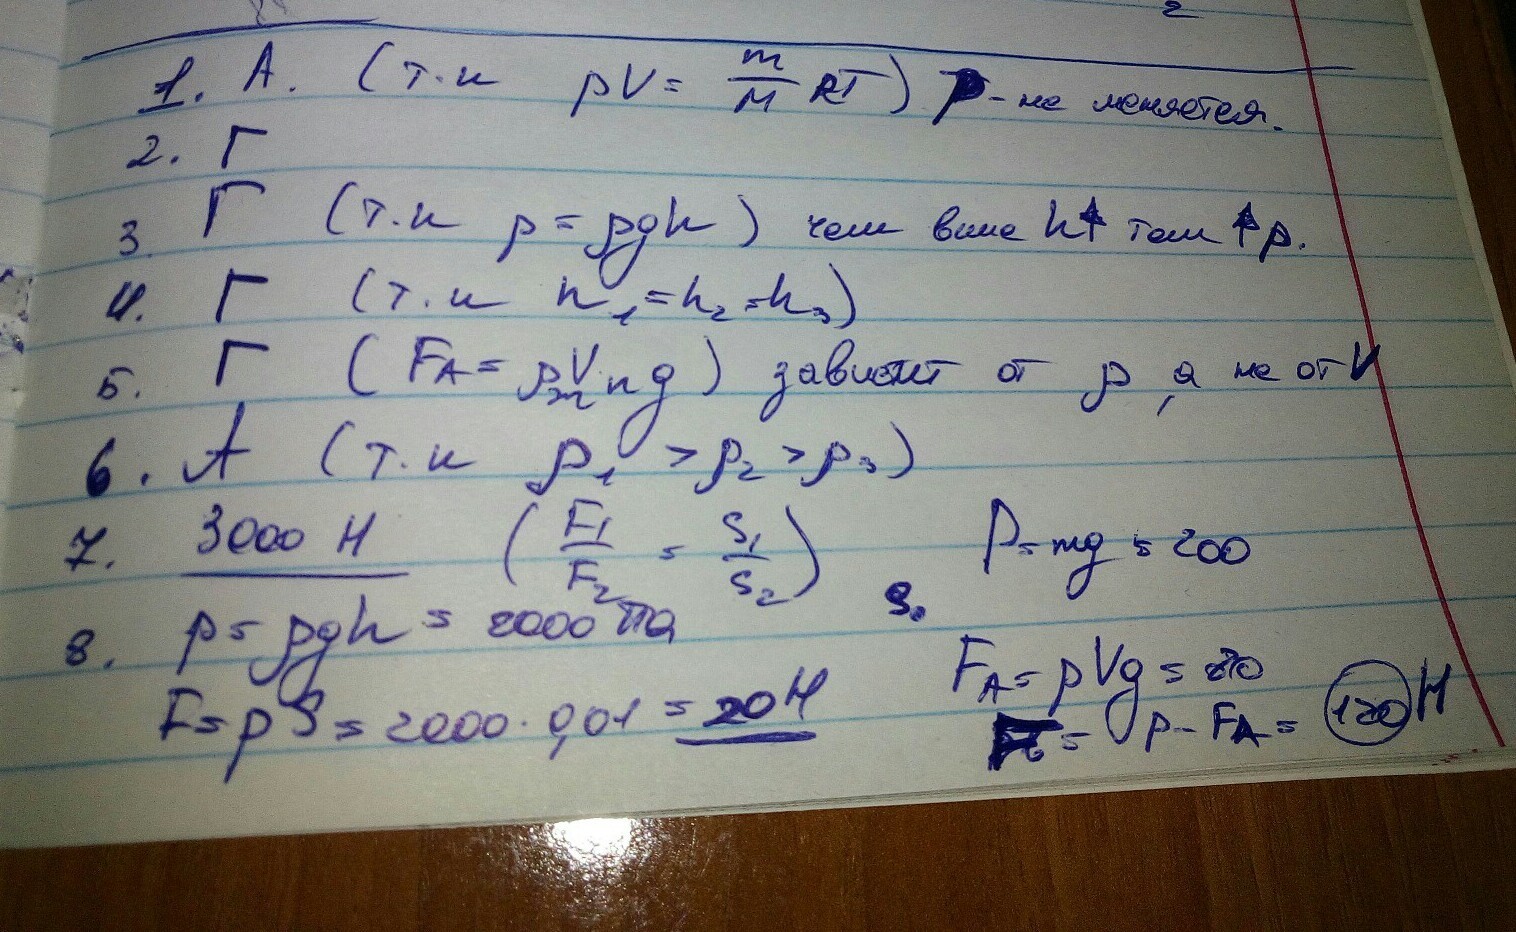 2
1. А. (т.к pV = m/M RT) р - не меняется.
2. Г
3. Г (т.к p = ρgh) чем выше h↑ тем ↑p.
4. Г (т.к h₁ = h₂ = h₃)
5. Г (F_A = ρ Vп g) зависит от ρ, а не от V
6. А (т.к p₁ > p₂ > p₃)
7. 3000 Н (F₁/F₂ = S₁/S₂)
8. p = ρgh = 2000 Па
F = pS = 2000 · 0,01 = 20 Н
9. P = mg = 200
F_A = ρVg = 80
= p - F_A = 120 Н